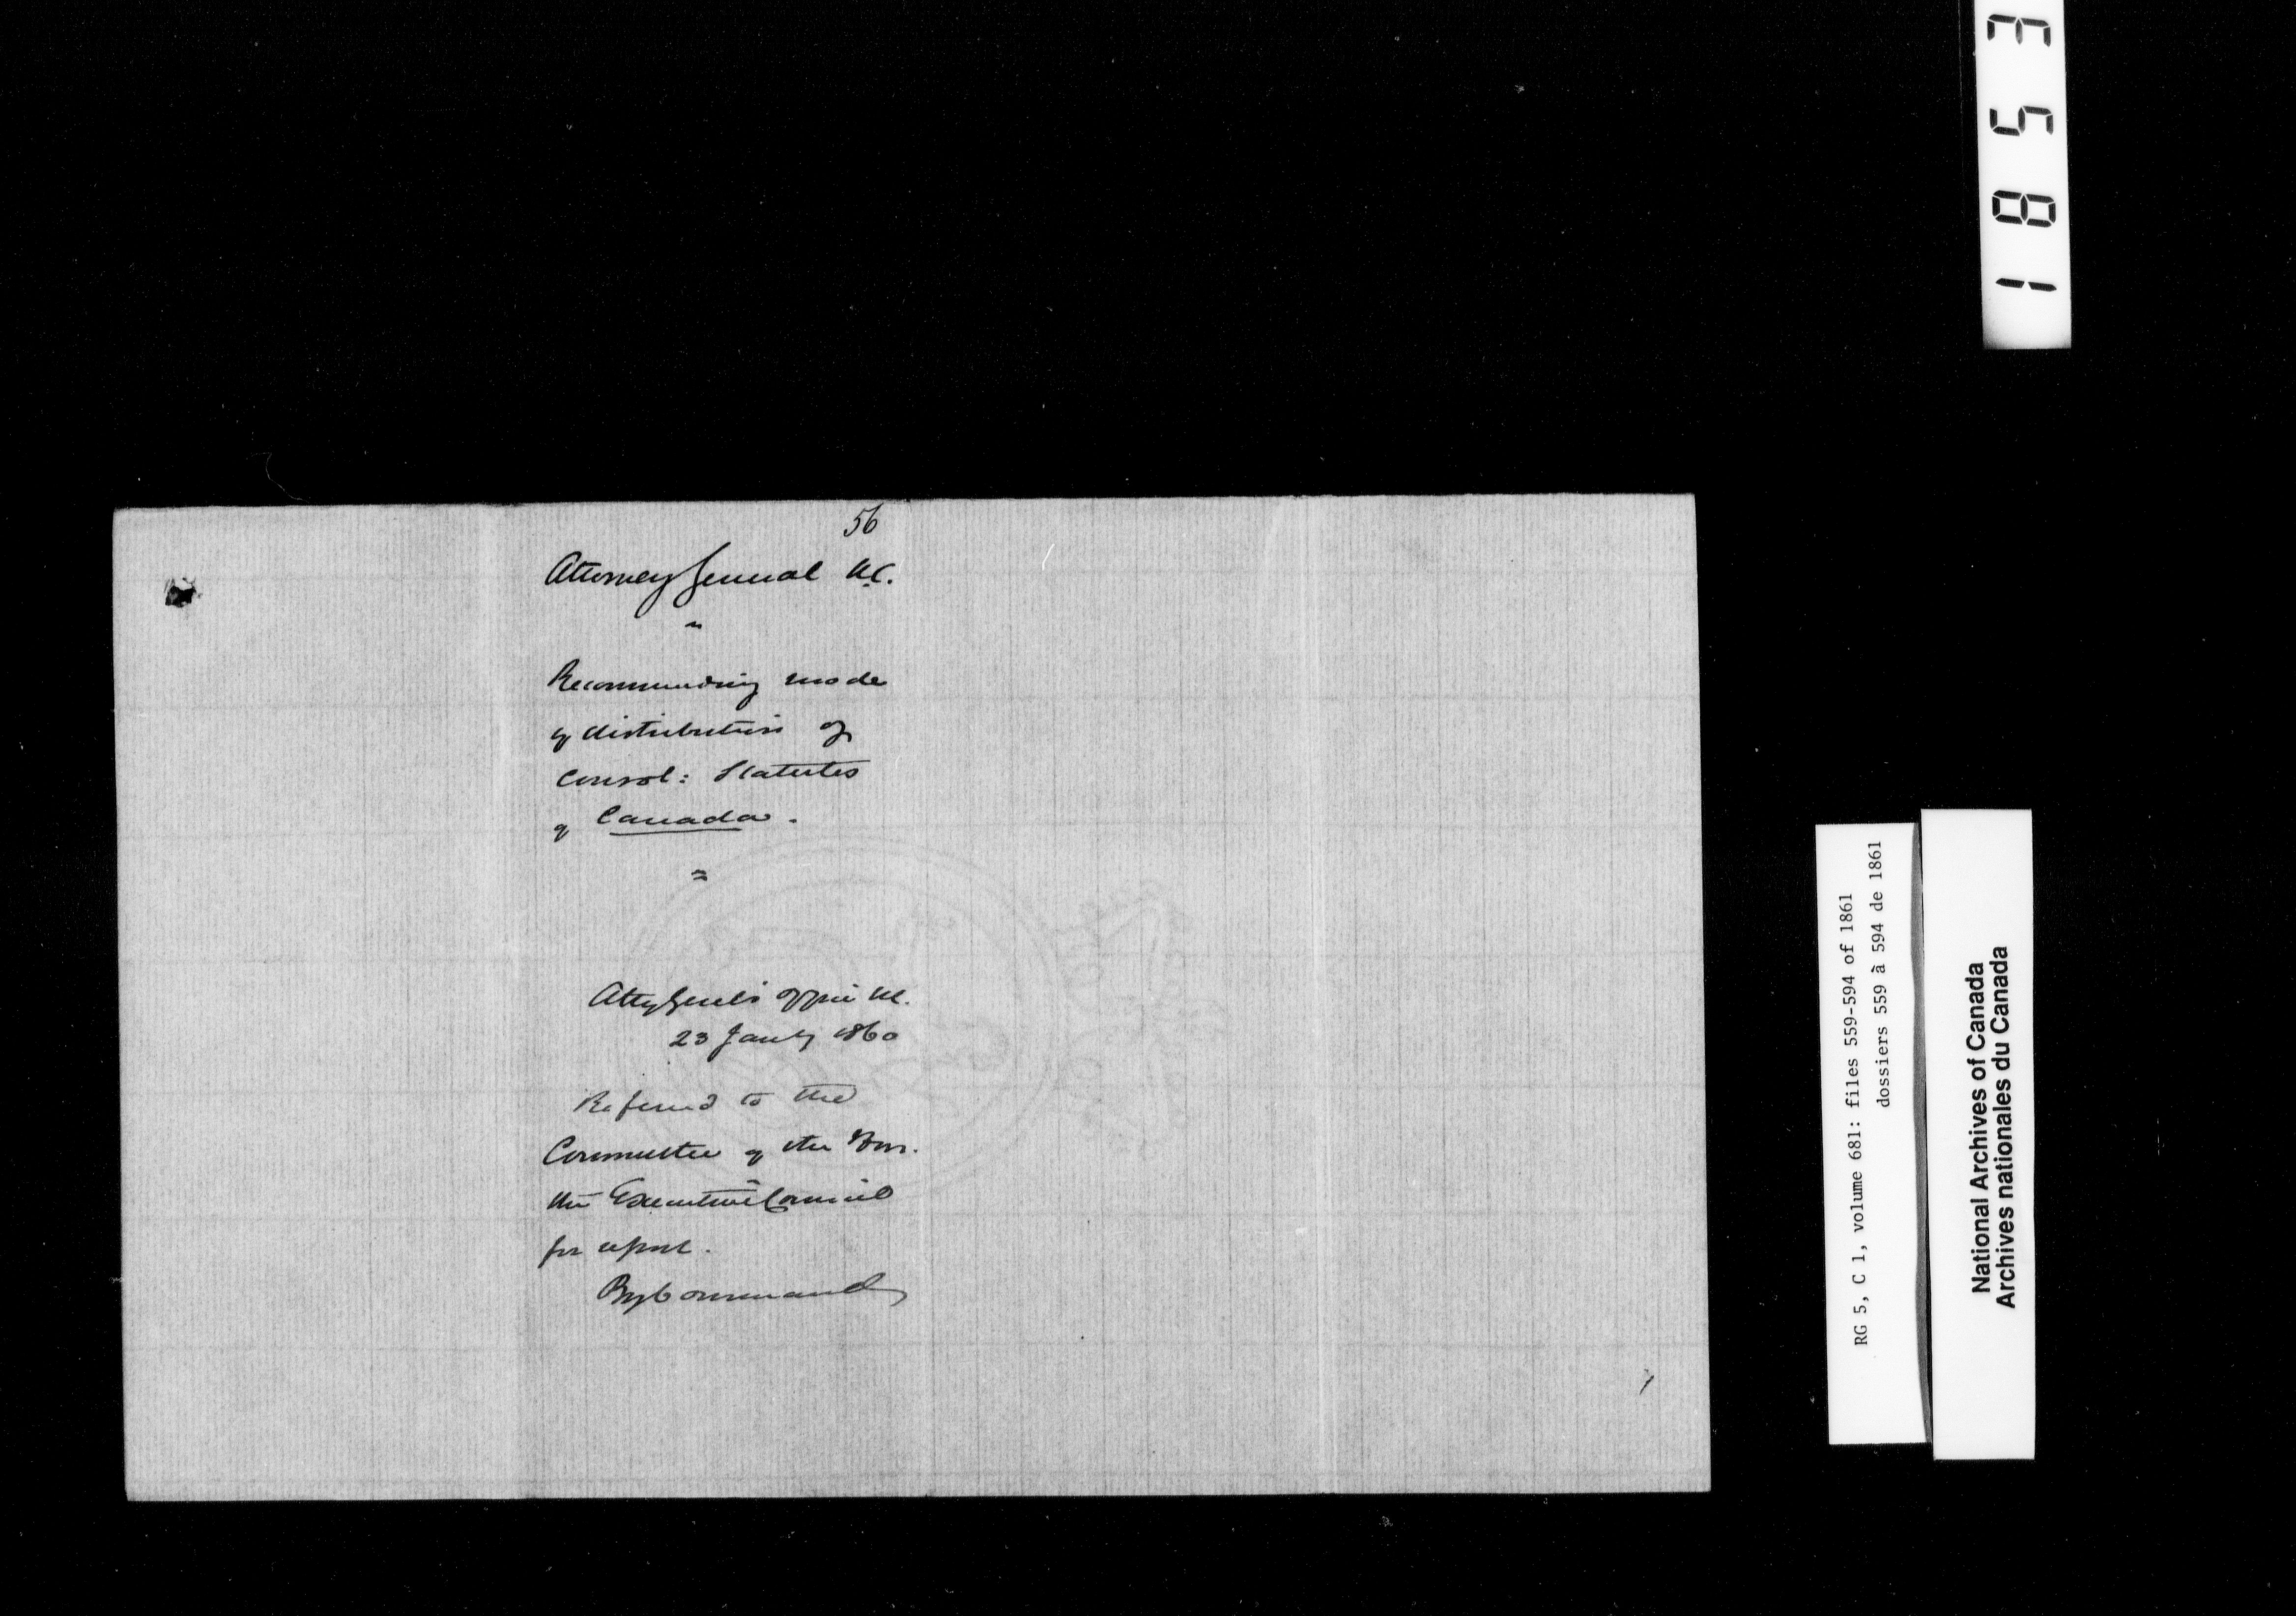 56
Attorney General U.C.
"
Recommending mode
of distribution of
Consol: Statutes
of Canada.
=
Atty Genl's Office U.C.
23 Jany 1860
Referred to the
Committee of the Hon.
the Executive Council
for report.
By Command
1853
RG 5, C 1, volume 681: files 559-594 of 1861
dossiers 559 à 594 de 1861
National Archives of Canada
Archives nationales du Canada